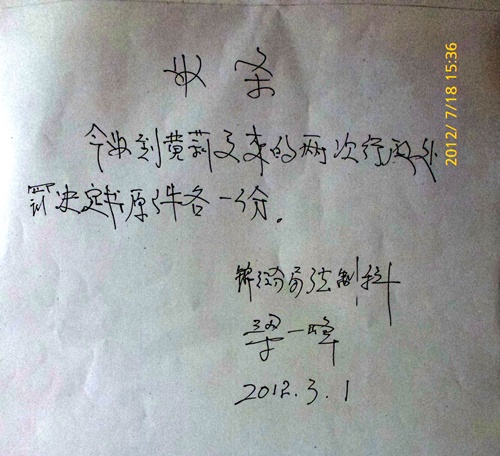 收条
今收到黄莉交来的两次行政处
罚决定书原件各一份。
锦江分局法制科
梁一峰
2012.3.1
2012/7/18 15:36